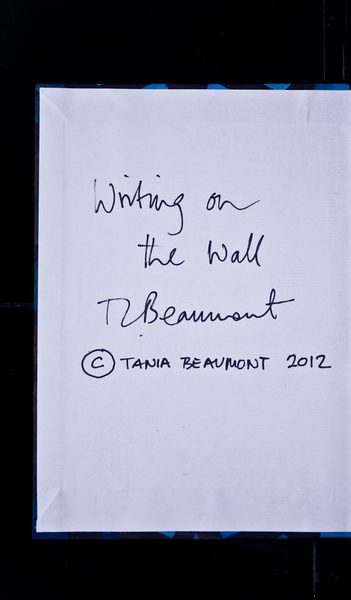 Writing on
the Wall
TZBeaumont
© TANIA BEAUMONT 2012